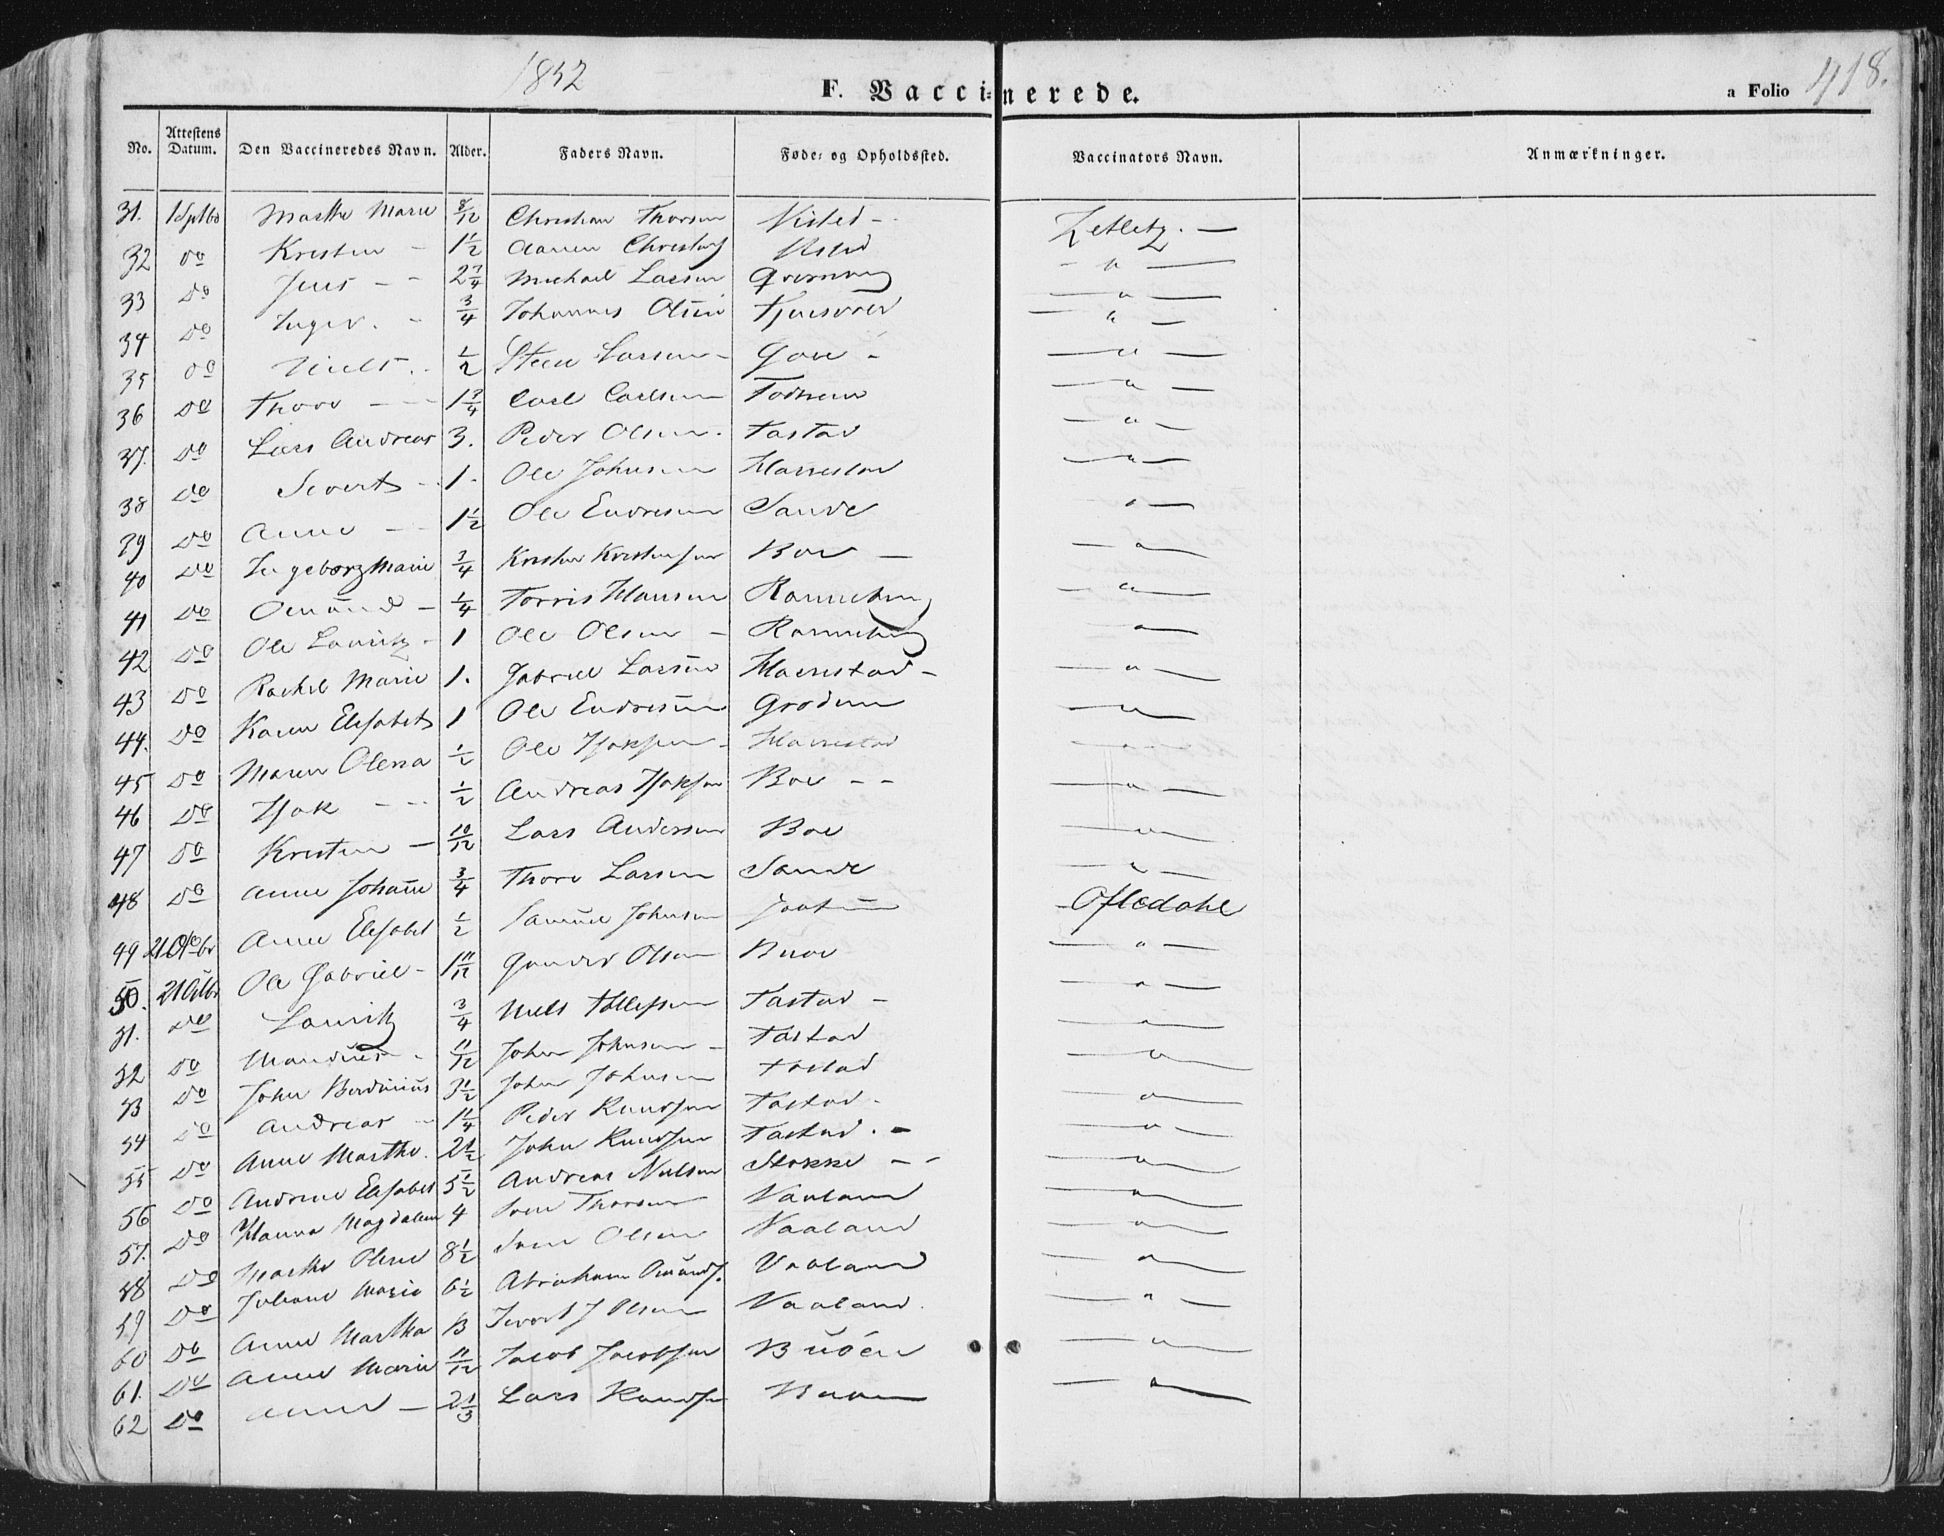 1852
F. Vaccinerede.
a Folio 418.
No. Attestens Datum. Den Vaccineredes Navn. Alder. Faders Navn. Føde- og Opholdssted. Vaccinators Navn. Anmærkninger.
31. 1 Sptbr Marthe Marie 8/12 Christian Thorsen Visted - Zetletz. —
32 do Kristen - 1 1/2 Aanen Christens Ustad - " —
33 Do Jens - - 2 3/4 Michael Larsen — " —
34 Do Inger. - 3/4 Johannes Olsen — " —
35 Do Niels . . 1/2 Steen Larsen - Goue - — " —
36 Do Thore - - 1 3/4 Carl Carlsen Todnem — " —
37. Do Lars Andreas 3. Peder Olsen. Tastad — " —
38 Do Sivert - 1. Ole Johnsen Harrestad — " —
39 Do Anne - - 1 1/2 Ole Endresen Sande — " —
40 Do Ingeborg Marie 3/4 Krister Kristensen Boe — — " —
41 Do Omund - 1/4 Torris Hansen — " —
42 Do Ole Lauritz - 1 Ole Olsen - — " —
43 Do Rachel Marie 1. Gabriel Larsen Harrestad - — " —
44. Do Karen Elisabet 1 Ole Endresen Grødem — " —
45 Do Maren Olena 1/2 Ole Isaksen - Harrestad — " —
46 Do Isak - - 1/2 Andreas Isaksen Boe - - — " —
47 Do Kristen — 10/12 Lars Andersen Boe — " —
48 Do Anne Johanne 3/4 Thore Larsen Sande — " —
49 21 Octbr Anne Elisabet 1/2 Samuel Johnsen Jaatun - Oftedahl
50. 21 Octbr Ole Gabriel - 1 11/12 Gunder Olsen Buoe — " —
51. Do Lauritz 3/4 Niels Tollefsen Tastad - — " —
52 Do Mandius - 11/12 John Johnsen - Tastad — " —
53 Do John Berdinius 3 1/2 John Johnsen Tastad — " —
54 Do Andreas - Peder Knudsen Tastad. — " —
55 Do Anne Marthe. 2 1/2 John Knudsen Tastad. - — " —
56 Do Andrine Elisabet 5 1/2 Andreas Nielsen Stokke - - — " —
57. Do Hanna Magdalena 4 Sven Thorsen Vaaland — " —
58 Do Marthe Olene 8 1/2 Sven Olsen Vaaland — " —
59 Do Juliane Marie 6 1/2 Abraham Omunds. Vaaland — " —
60 Do Anne Martha 13 Sivert J Olsen Vaaland. — " —
61. Do Anne Marie 11/12 Jacob Jacobsen Buöen — " —
62 Do Anne — 2 1/3 Lars Knudsen Buoen — " —